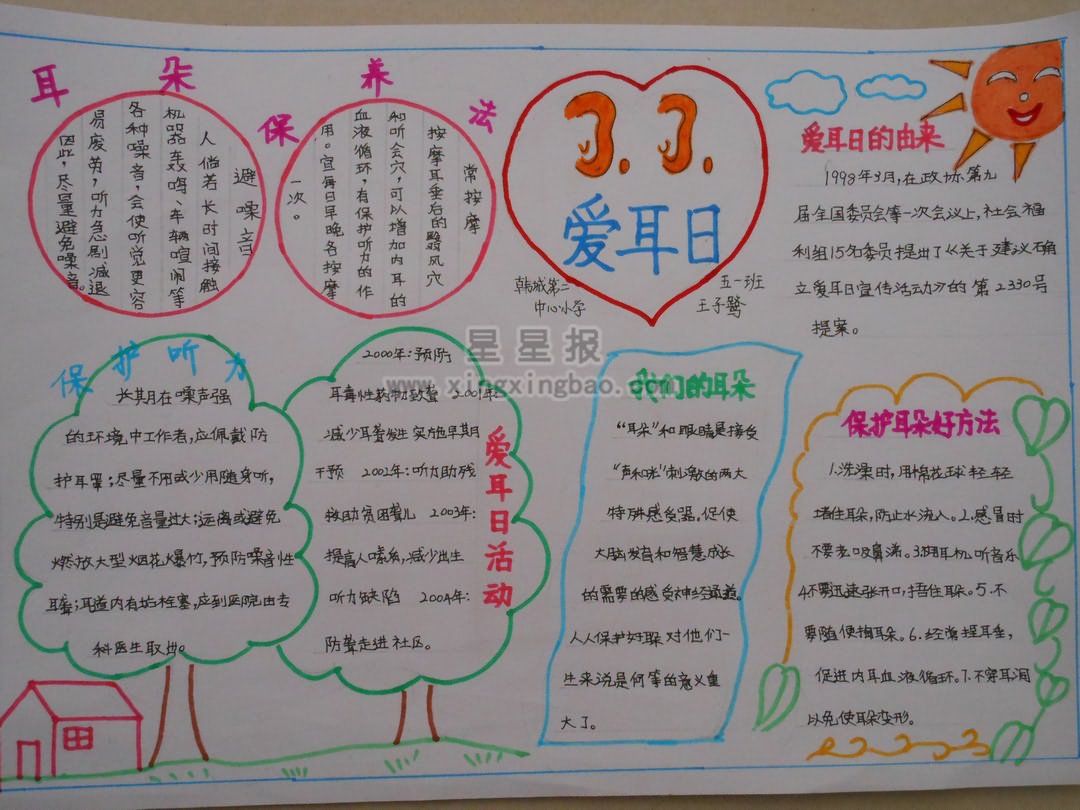 耳朵保养法
避噪音
人倘若长时间接触
机器轰鸣、车辆喧闹等
各种噪音，会使听觉更容
易废劳，听力急剧减退
因此，尽量避免噪音。
常按摩
按摩耳垂后的翳风穴
和听会穴，可以增加内耳的
血液循环，有保护听力的作
用。宜每日早晚各按摩
一次。
3.3.
爱耳日
韩城第二
中心小学
五一班
王子鹭
爱耳日的由来
1998年3月，在政协第九
届全国委员会第一次会议上，社会福
利组15名委员提出了《关于建议确
立爱耳日宣传活动》的第2330号
提案。
保护听力
长期在噪声强
的环境中工作者，应佩戴防
护耳罩；尽量不用或少用随身听，
特别是避免音量过大；远离或避免
燃放大型烟花爆竹，预防噪音性
耳聋；耳道内有 栓塞，应到医院由专
科医生取出。
爱耳日活动
2000年：预防
耳毒性药物致聋 2001年
减少耳聋发生 实施早期
干预 2002年：听力助残
救助贫困聋儿 2003年：
提高人 素质，减少出生
听力缺陷 2004年：
防聋走进社区。
我们的耳朵
“耳朵”和眼睛是接受
“声和 ”刺激的两大
特殊感受器。促使
大脑发育和智慧成长
的需要的感受神经通道。
人人保护好耳朵对他们一
生来说是何等的意义重
大了。
保护耳朵好方法
1.洗澡时，用棉花球轻轻
堵住耳朵，防止水流入。2.感冒时
不要老吸鼻涕。3.用耳机听音乐
4不要迅速张开口，捂住耳朵。5.不
要随便掏耳朵。6.经常捏耳垂，
促进内耳血液循环。7.不穿耳洞
以免使耳朵变形。
星星报
www.xingxingbao.com